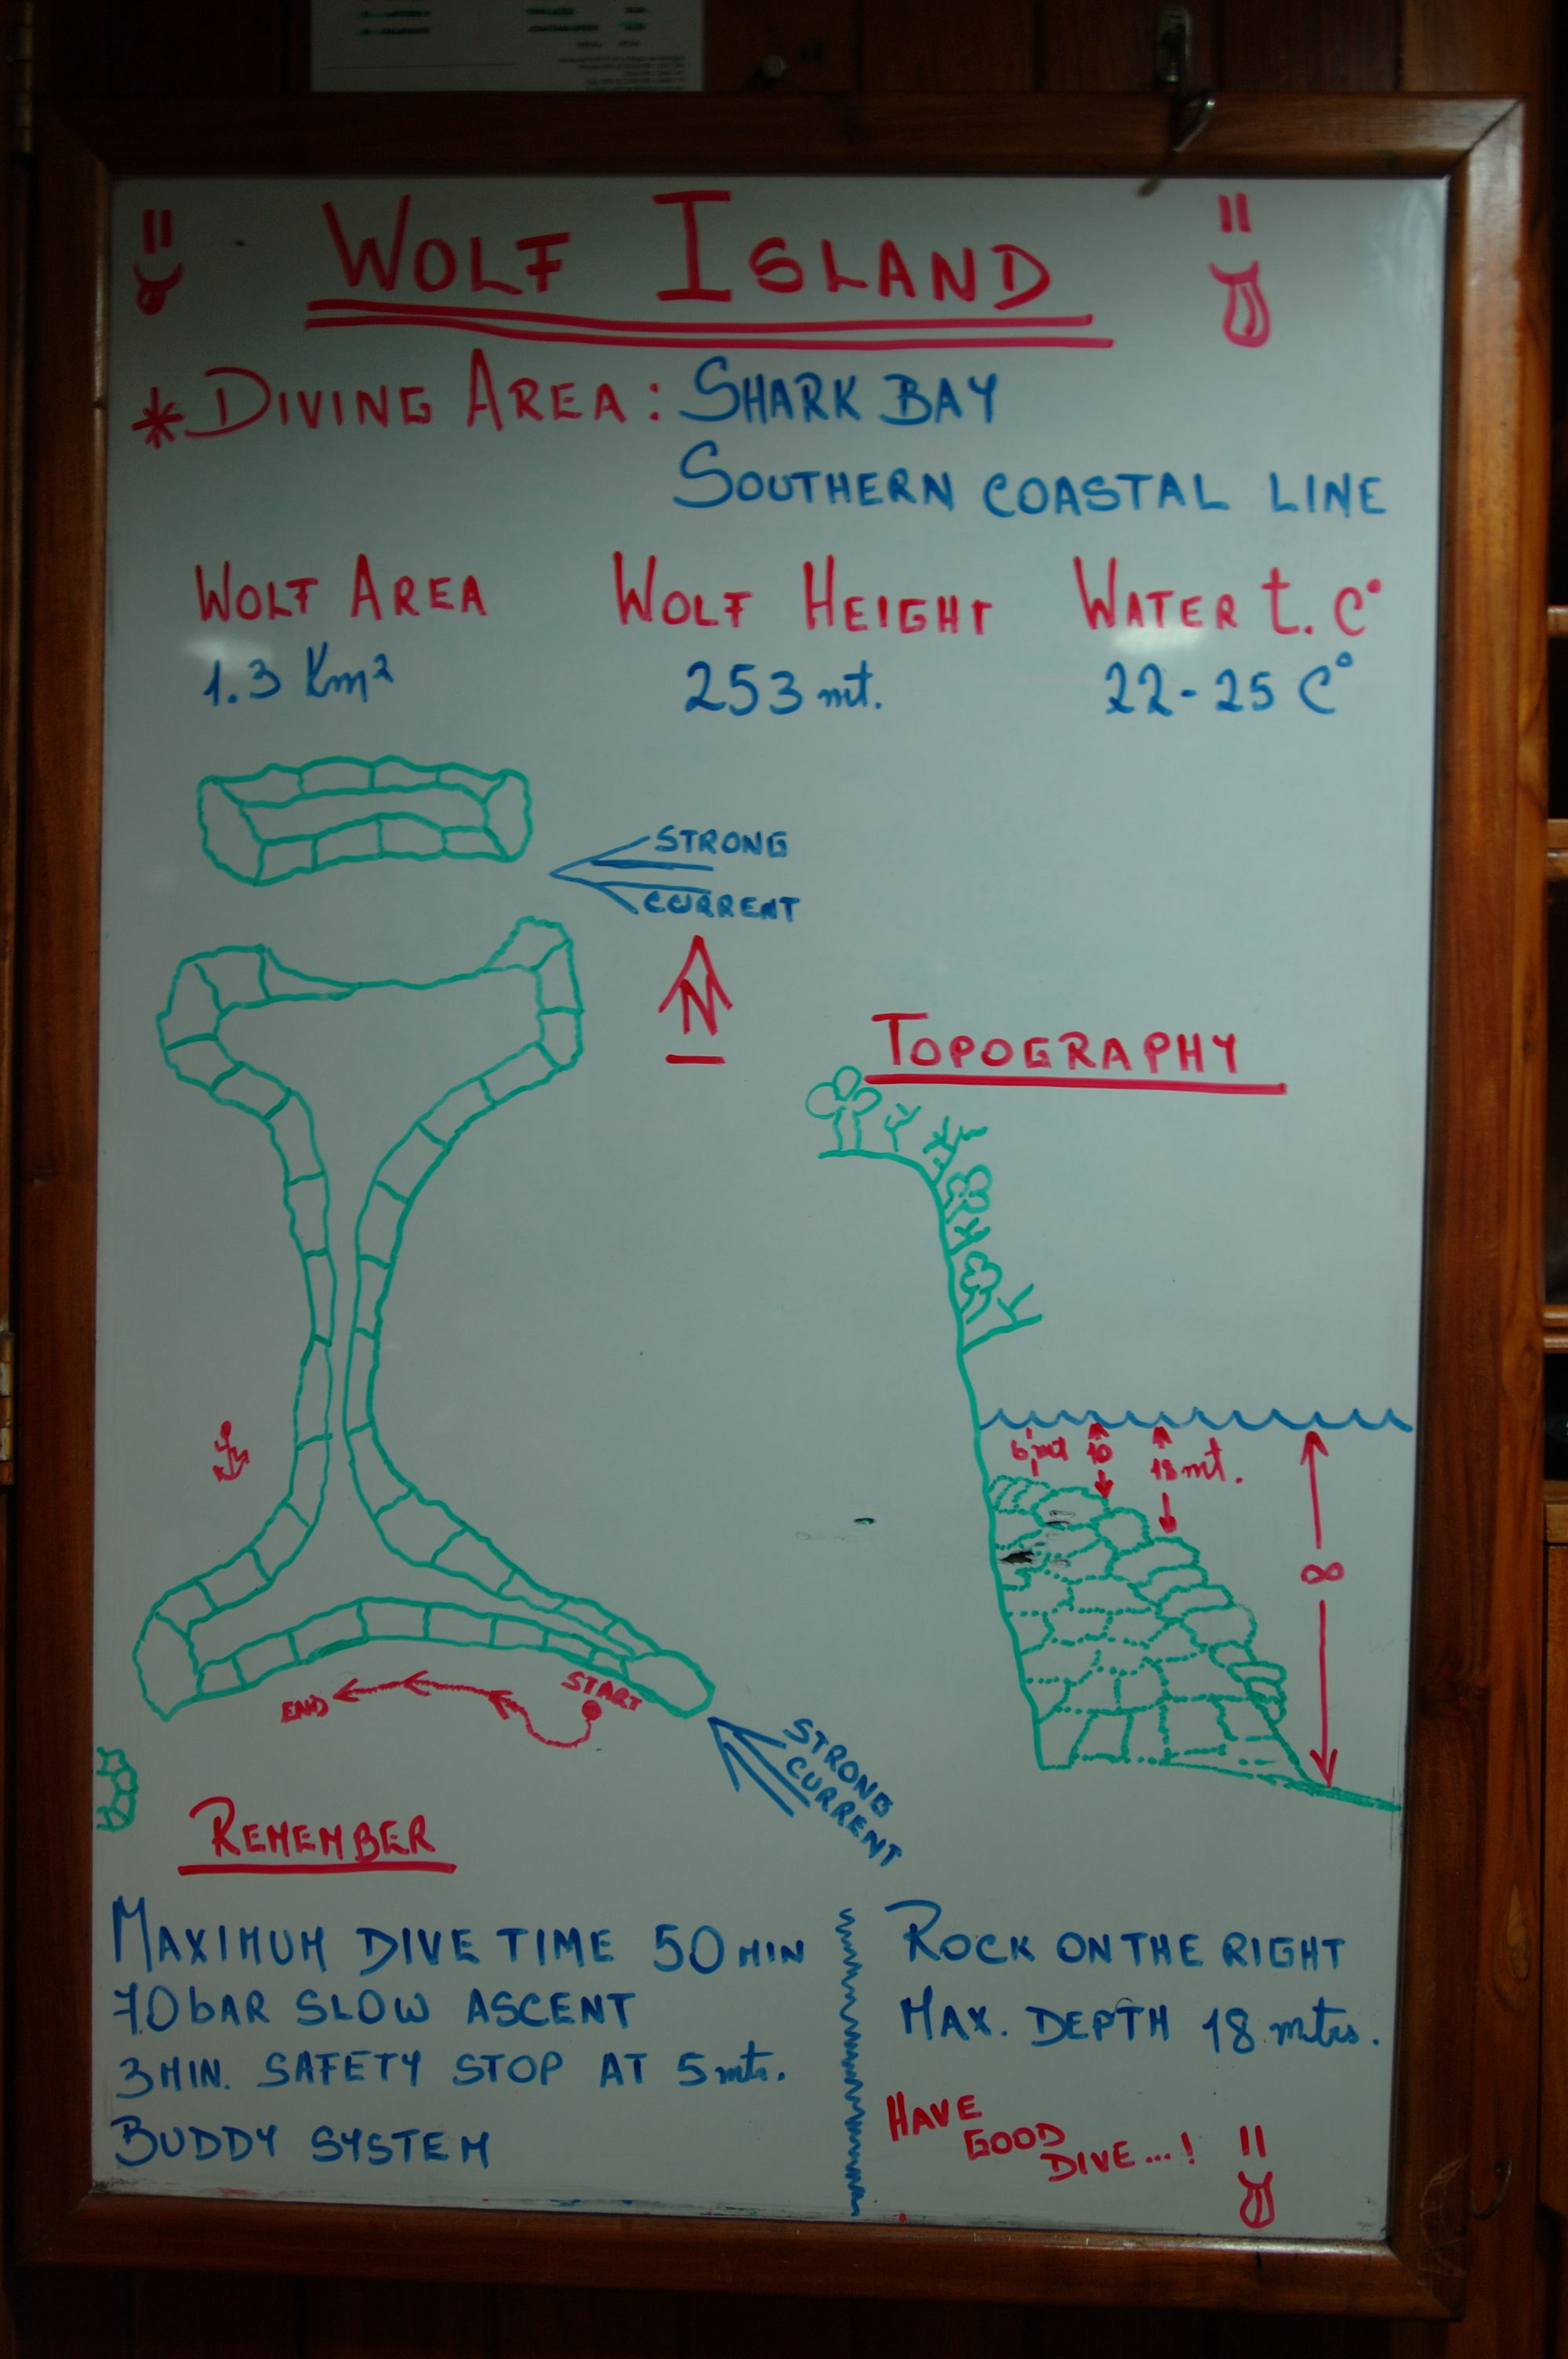 WOLF ISLAND
* DIVING AREA: SHARK BAY
SOUTHERN COASTAL LINE
WOLF AREA
1.3 Km²
WOLF HEIGHT
253 mt.
WATER t. C°
22-25 C°
STRONG
CURRENT
N
TOPOGRAPHY
6 mt
10
18 mt.
∞
START
END
STRONG
CURRENT
REMEMBER
MAXIMUM DIVE TIME 50 MIN
70 bAR SLOW ASCENT
3 MIN. SAFETY STOP AT 5 mts.
BUDDY SYSTEM
ROCK ON THE RIGHT
MAX. DEPTH 18 mtrs.
HAVE
GOOD
DIVE...!